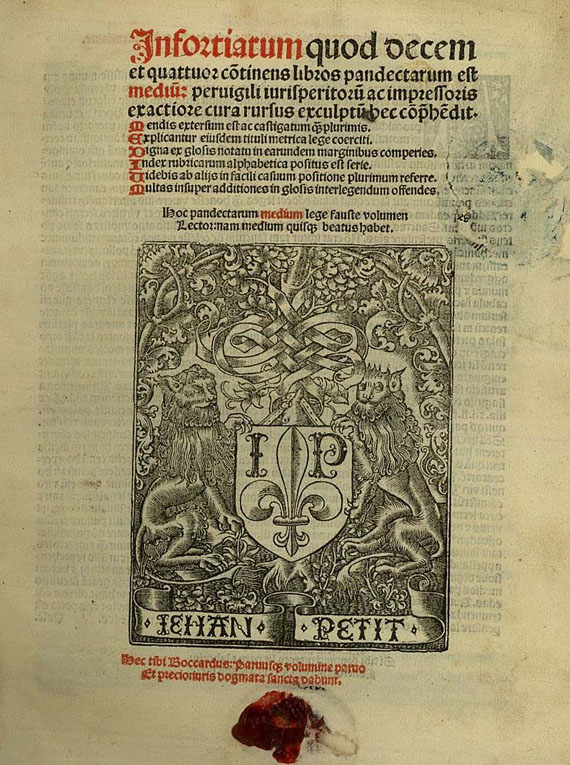 Infortiatum quod decem
et quattuor cõtinens libros pandectarum est
mediũ: peruigili iurisperitorũ ac impressoris
exactiore cura rursus exculptũ hec cõp̃hẽdit.
Mendis extersum est ac castigatum q̃plurimis.
Explicantur eiusdem tituli metrica lege coerciti.
Digna ex glosis notatu in earundem marginibus comperies.
Index rubricarum alphabetica positus est serie.
Uidebis ab alijs in facili casuum positione plurimum referre.
Multas insuper additiones in glosis interlegendum offendes.
Hoc pandectarum medium lege fauste volumen
Lector: nam medium quisq̃ beatus habet.
I P
IEHAN PETIT
Hec tibi Boccardus: Paruusq̃ volumine paruo
Et precio iuris dogmata sancta dabunt.